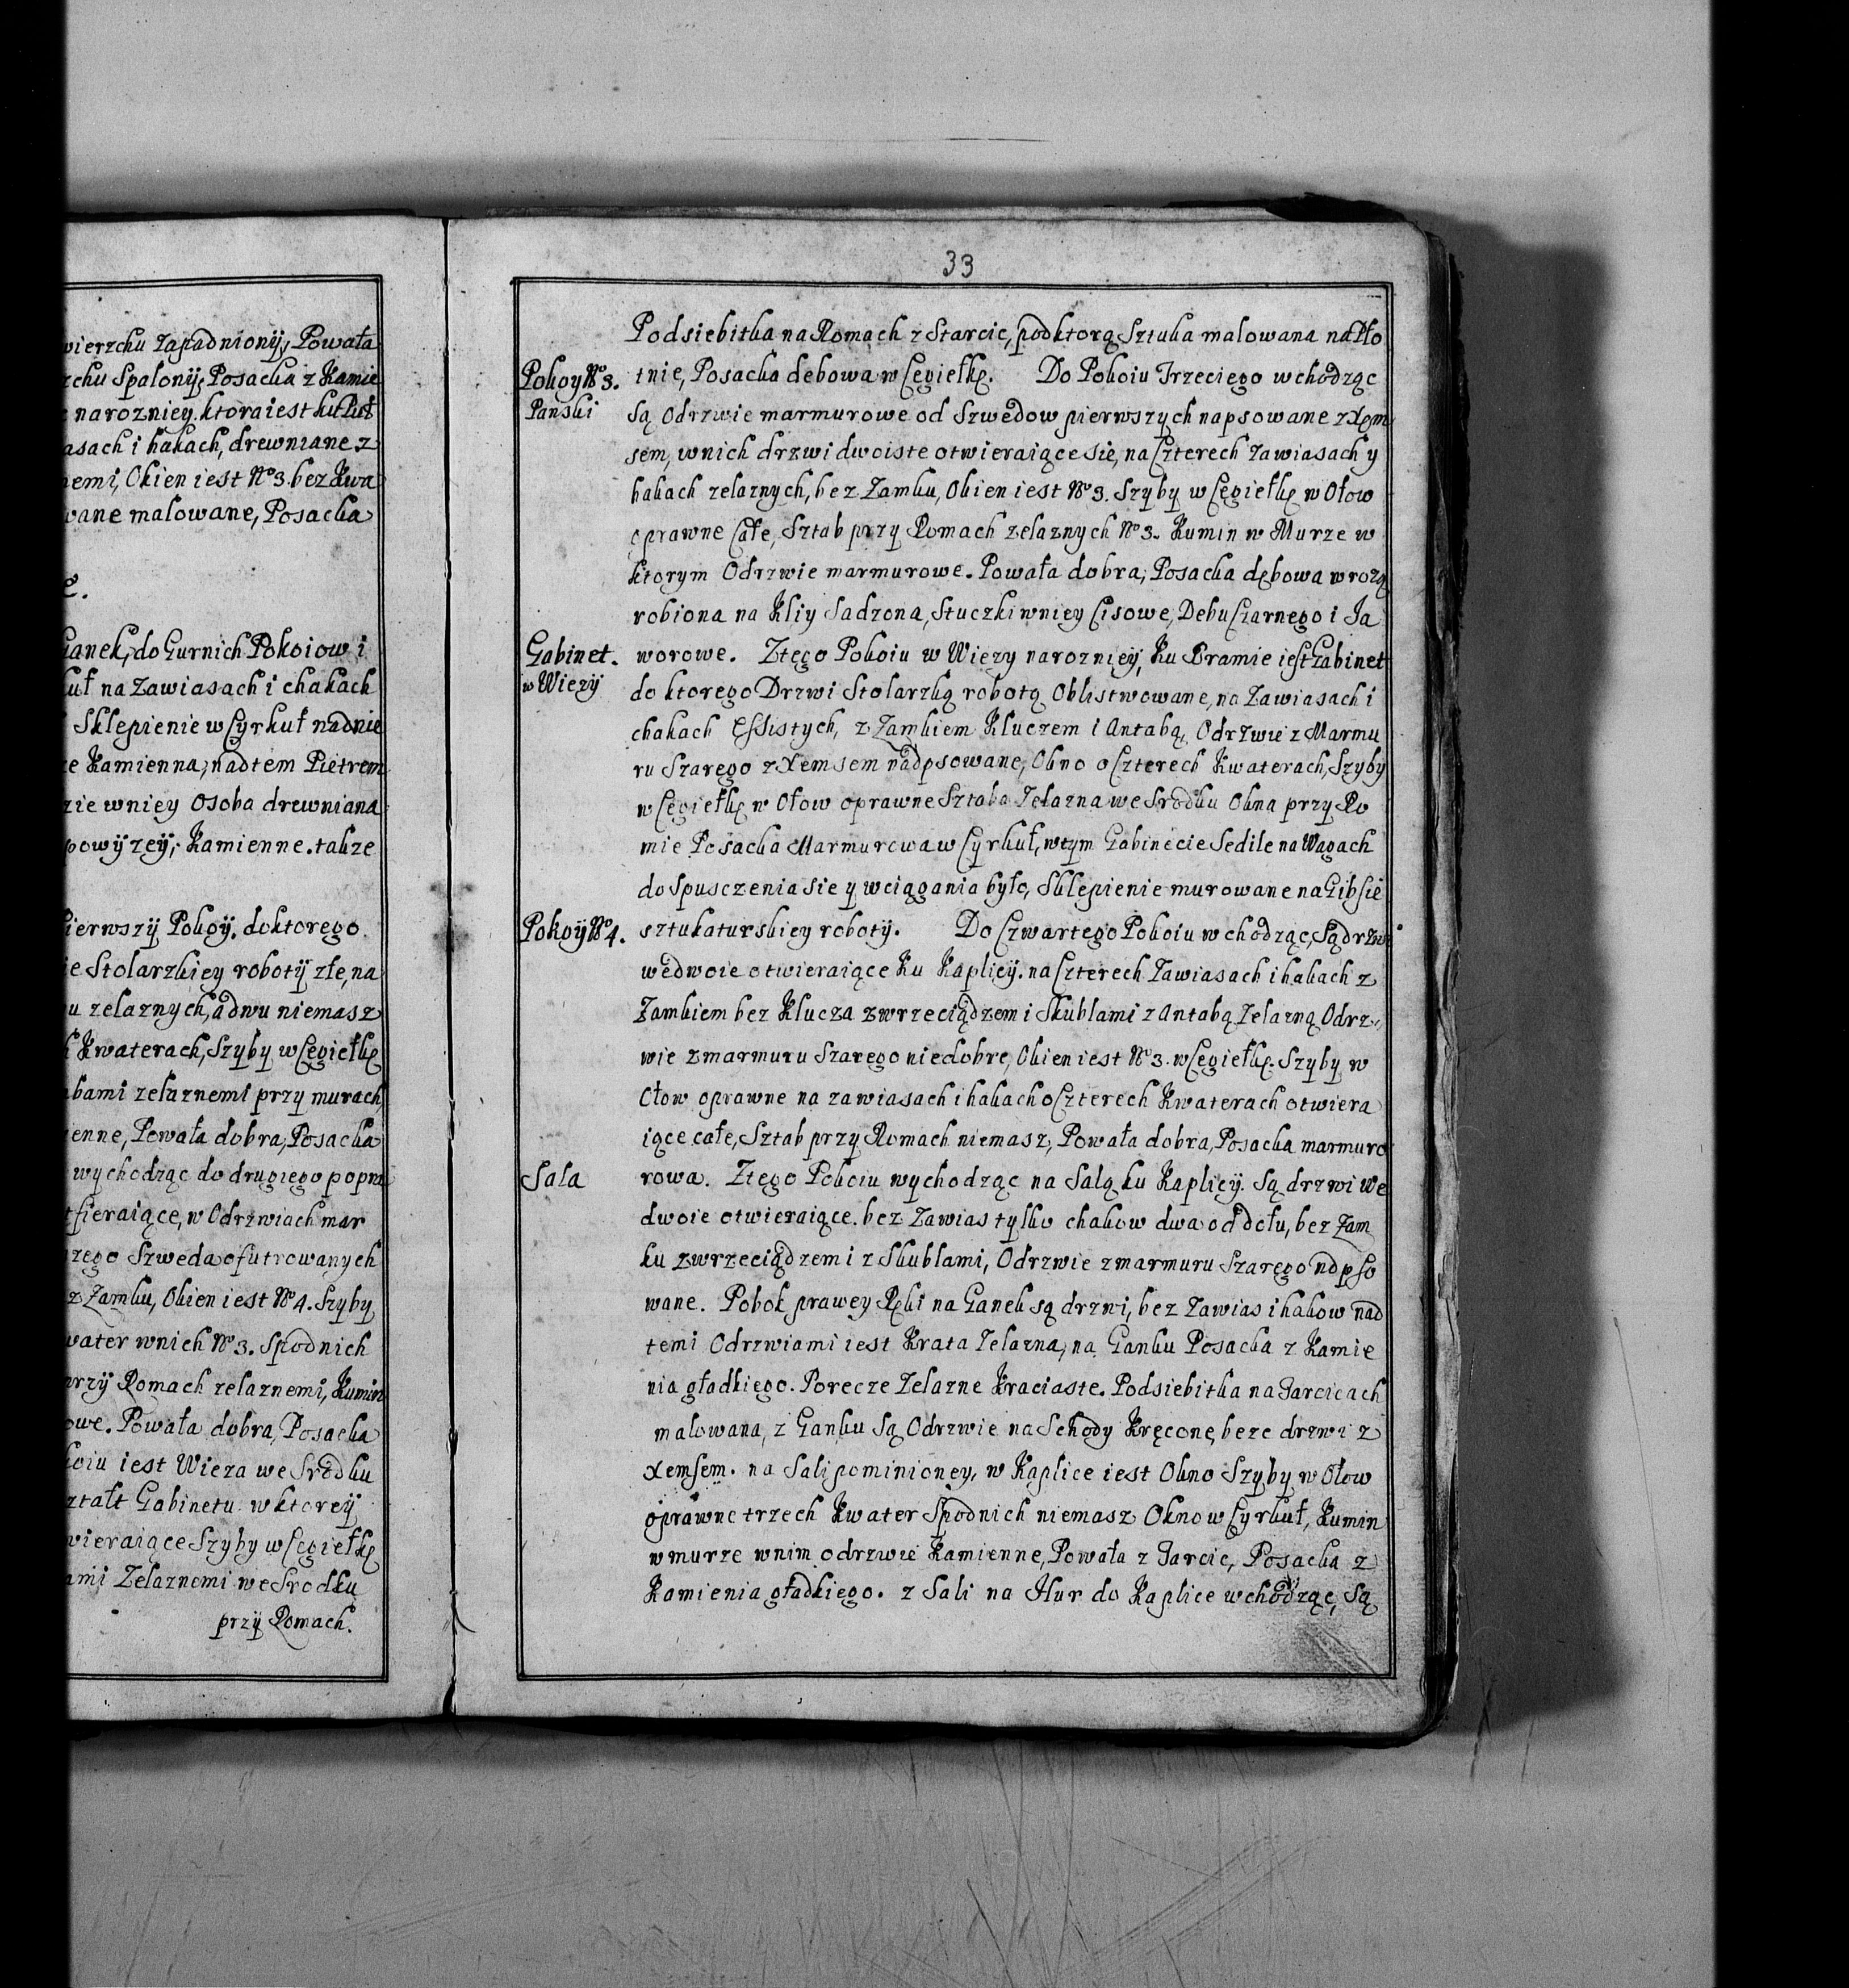 wierzchu zapadnionÿ, Powała
rzchu Spalonÿ, Posacka z Kamie
narozniey. ktora iest ku Put
asach i hakach, drewniane z
nemi, Okien iest No 3. bez Kwa
wane malowane, Posacka
Ganek, do Gurnich Pokoiow i
kuł na Zawiasach i chakach
Sklepienie w Cyrkuł nadnie
ze Kamienna, nad tem Pietrem
zie wniey osoba drewniana
powÿzeÿ, Kamienne. takze
Pierwszÿ Pokoÿ, do ktorego
ie Stolarzkiey robotÿ złe, na
u zelaznych, a dwu niemasz
h Kwaterach, Szyby w Cegiełkę
abami zelaznemi przy murach,
ienne, Powała dobra, Posacka
wychodząc do drugiego popra
tfieraiące, w Odrzwiach mar
rzego Szweda ofutrowanych
z Zamku, Okien iest No 4. Szyby
water wnich No 3. Spodnich
przÿ Romach zelaznemi, Kumin
owe. Powała dobra, Posacka
koiu iest Wieza we Srodku
ztałt Gabinetu w ktoreÿ
wieraiące Szyby w Cegiełkę
ami Zelaznemi we Srodku
przÿ Romach.
33
Podsiebitka na Romach z Starcic, pod ktorą Sztuka malowana na Pło
Pokoy No 3. Panski
tnie, Posacka debowa w Cegiełkę. Do Pokoiu Trzeciego wchodząc
są Odrzwie marmurowe od Szwedow pierwszych napsowane z Xem
sem, wnich drzwi dwoiste otwieraiące sie, na Czterech Zawiasach y
hakach zelaznych, bez Zamku, Okien iest No 3. Szyby w Cegiełkę w Ołow
oprawne Całe, Sztab przy Romach zelaznych No 3. Kumin w Murze w
ktorym Odrzwie marmurowe. Powała dobra, Posacka dębowa w rozą
robiona na Kliy Sadzona, Stuczki wniey Cisowe, Debu Czarnego i Ja
Gabinet. w Wiezÿ
worowe. Ztego Pokoiu w Wiezy narozniey, Ku Bramie iest Gabinet
do ktorego Drzwi Stolarzką robotą Oblistwowane, na Zawiasach i
chakach Essistych, z Zamkiem Kluczem i Antabą, Odrzwie z Marmu
ru Szarego z Xemsem nadpsowane, Okno o Czterech Kwaterach, Szyby
w Cegiełkę w Ołow oprawne Sztaba Zelazna we Srodku Okna przy Ro
mie Posacka Marmurowa w Cyrkuł, wtym Gabinecie Sedile na Wagach
do Spusczenia sie y wciągania było, Sklepienie murowane na Gibsie
Pokoy No 4.
sztukaturskiey robotÿ. Do Czwartego Pokoiu wchodząc, Są drzwi
wedwoie otwieraiące Ku Kaplicÿ. na Czterech Zawiasach i hakach z
Zamkiem bez Klucza zwrzeciądzem i Skublami z Antabą Zelazną Odrz-
wie z marmuru Szarego niedobre, Okien iest No 3. w Cegiełkę. Szyby w
Ołow oprawne na zawiasach i hakach o Czterech Kwaterach otwiera
iące całe, Sztab przy Romach niemasz, Powała dobra, Posacka marmuro
Sala
rowa. Ztego Pokoiu wychodząc na Salą ku Kaplicÿ. Są drzwi we
dwoie otwieraiące. bez Zawias tylko chakow dwa od dołu, bez Zam
ku zwrzeciądzem i z Skublami, Odrzwie z marmuru Szarego ndpso
wane. Pobok prawey Ręki na Ganek są drzwi, bez Zawias i hakow nad
temi Odrzwiami iest Krata Zelazna, na Ganku Posacka z Kamie
nia gładkiego. Porecze Zelazne Kraciaste. Podsiebitka na Tarcicach
malowana, z Ganku Są Odrzwie na Schody Kręcone, beze drzwi z
Xemsem. na Sali pominioney, w Kaplice iest Okno Szyby w Ołow
oprawne trzech Kwater Spodnich niemasz Okno w Cyrkuł, Kumin
w murze wnim odrzwie Kamienne, Powała z Tarcic, Posacka z
Kamienia gładkiego. z Sali na Hur do Kaplice wchodząc, Są